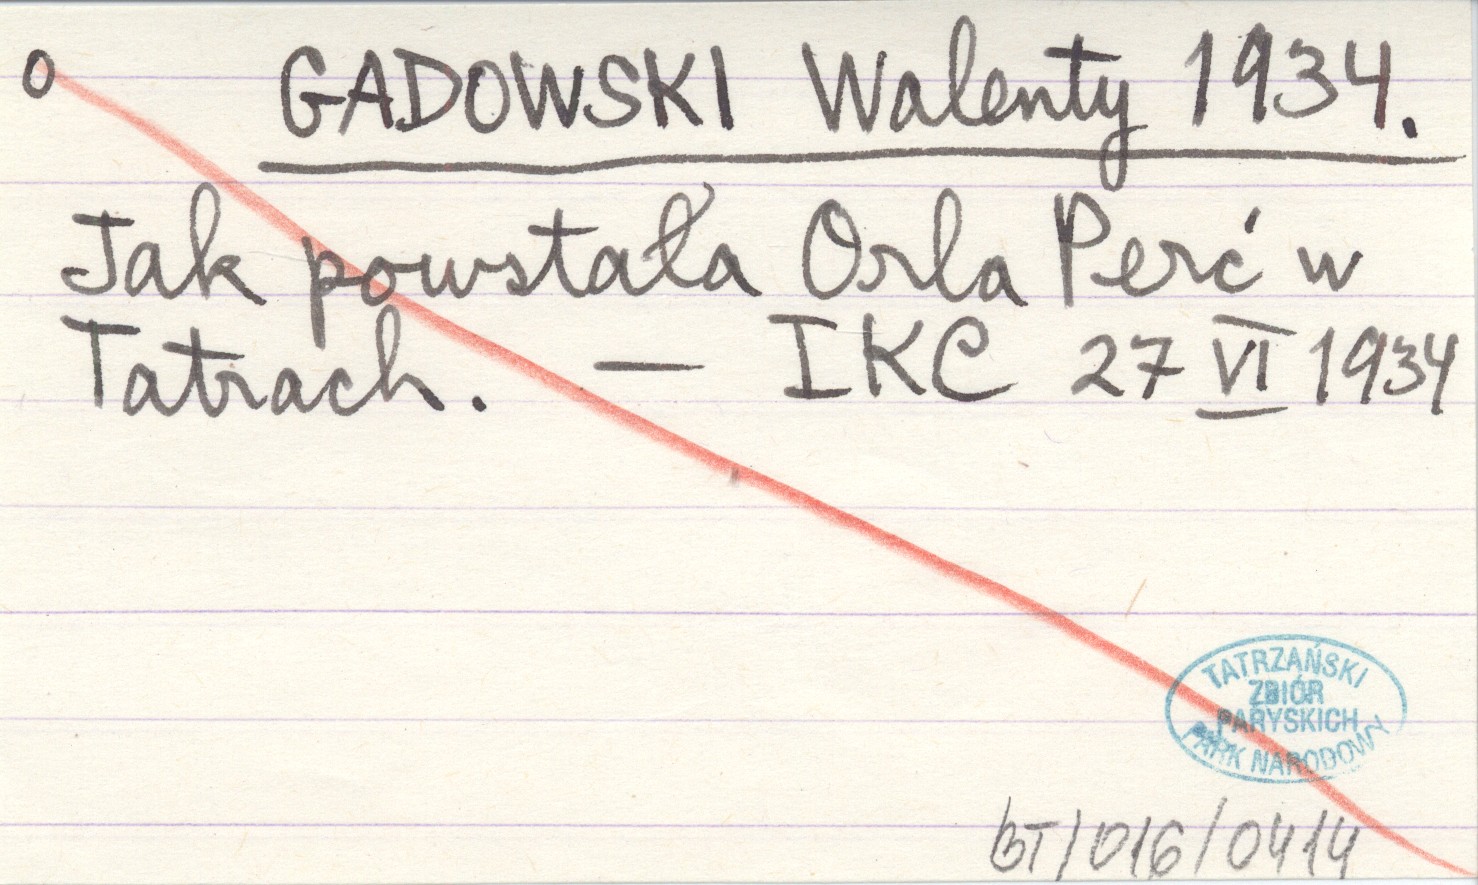 o GADOWSKI Walenty 1934.
Jak powstała Orla Perć w
Tatrach. — IKC 27 VI 1934
TATRZAŃSKI
ZBIÓR
PARYSKICH
PARK NARODOWY
BT/016/0414